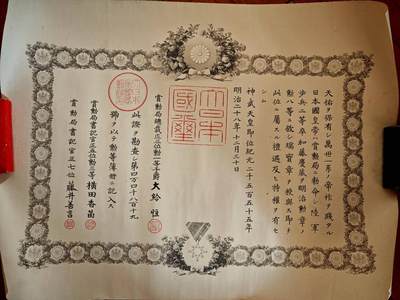 天佑ヲ保有シ萬世一系ノ帝祚ヲ踐タル
日本國皇帝ハ賞勲局ニ勅命シ陸軍
歩兵二等卒藤慶蔵ヲ明治勲章ノ
勲八等ニ敘シ瑞寶章ヲ授與ス即チ
此位ニ屬スル禮遇及ヒ特權ヲ有セ
シム
神武天皇即位紀元二千五百五十五年
明治二十八年十二月三十日
大日本國璽
賞勲局總裁正三位勲一等子爵大給恒
此證ヲ勘査シ第四万四千八百十九
號ヲ以テ勲等簿冊ニ記入ス
賞勲局書記官正五位勲三等横田香苗
賞勲局書記官正七位藤井善言